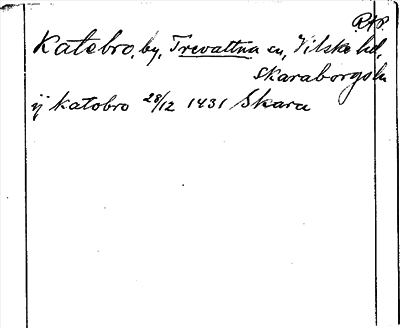 RAP.
Katebro, by, Trevattna sn, Vilske hd,
Skaraborgs ln
ij katobro 28/12 1431 Skara